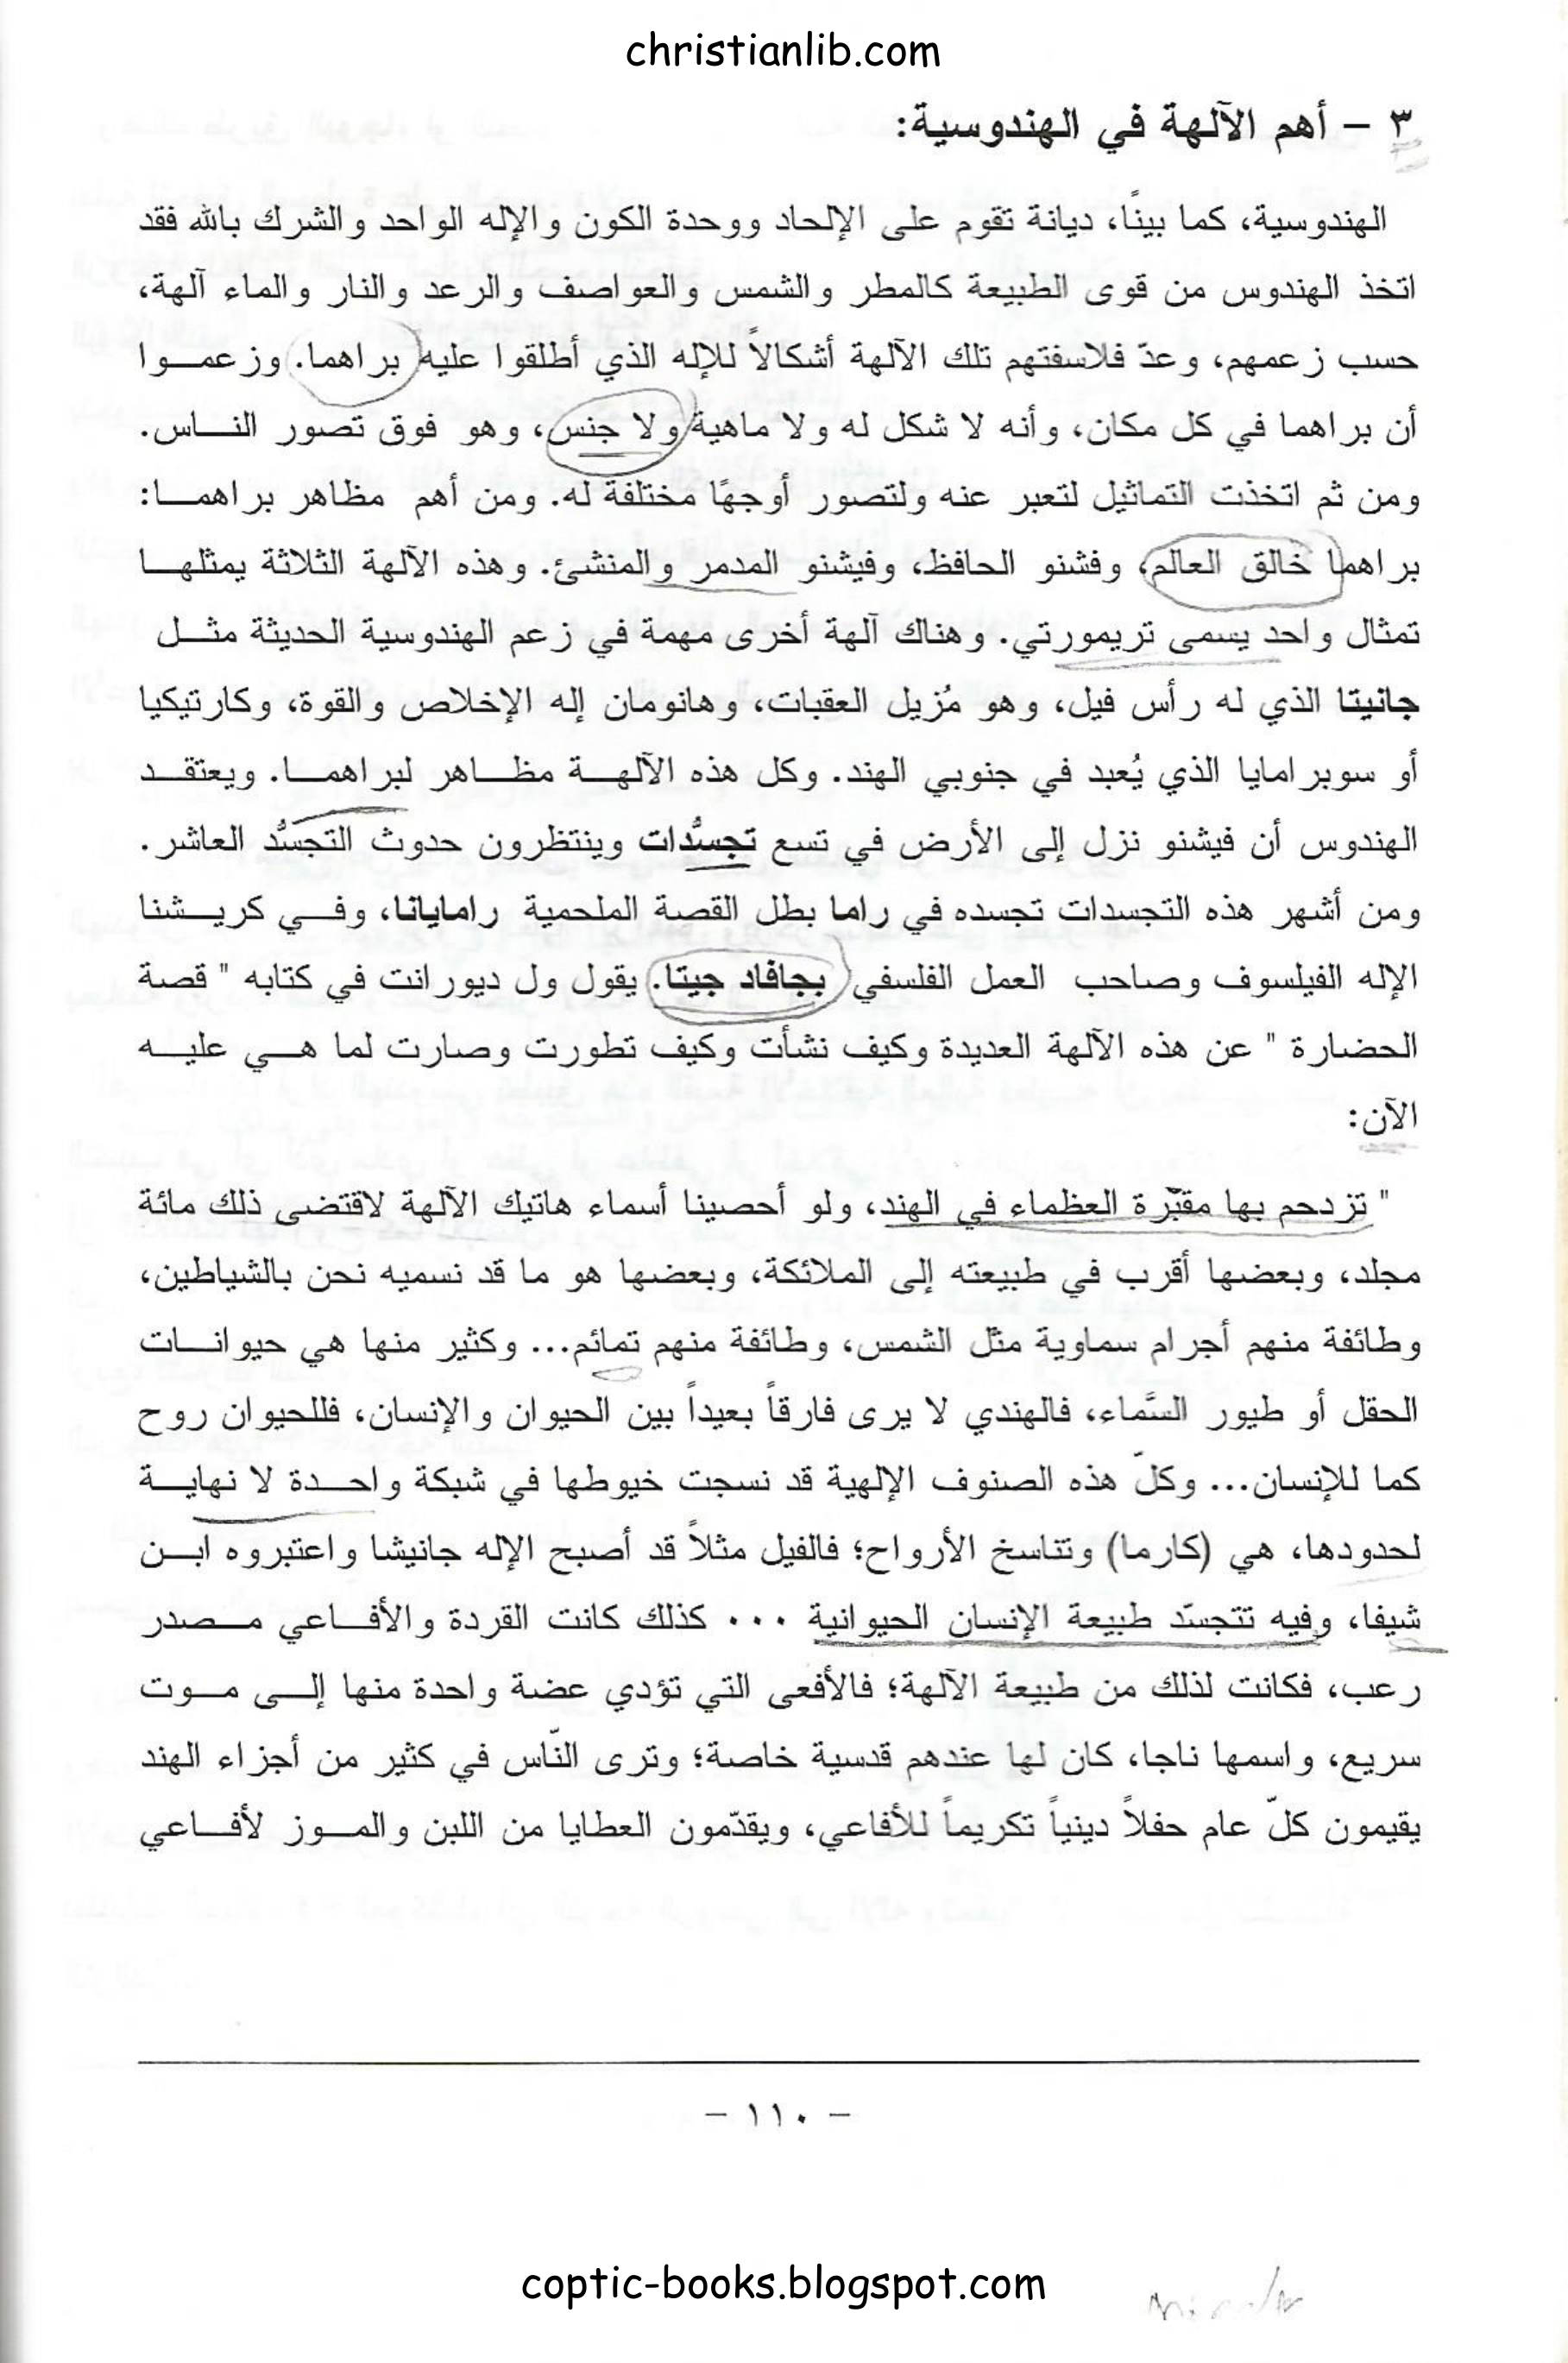 christianlib.com
٣ – أهم الآلهة في الهندوسية:
الهندوسية، كما بينًا، ديانة تقوم على الإلحاد ووحدة الكون والإله الواحد والشرك بالله فقد
اتخذ الهندوس من قوى الطبيعة كالمطر والشمس والعواصف والرعد والنار والماء آلهة،
حسب زعمهم، وعدّ فلاسفتهم تلك الآلهة أشكالاً للإله الذي أطلقوا عليه براهما. وزعموا
أن براهما في كل مكان، وأنه لا شكل له ولا ماهية ولا جنس، وهو فوق تصور الناس.
ومن ثم اتخذت التماثيل لتعبر عنه ولتصور أوجهًا مختلفة له. ومن أهم مظاهر براهما:
براهما خالق العالم، وفشنو الحافظ، وفيشنو المدمر والمنشئ. وهذه الآلهة الثلاثة يمثلها
تمثال واحد يسمى تريمورتي. وهناك آلهة أخرى مهمة في زعم الهندوسية الحديثة مثل
جانيتا الذي له رأس فيل، وهو مُزيل العقبات، وهانومان إله الإخلاص والقوة، وكارتيكيا
أو سوبرامايا الذي يُعبد في جنوبي الهند. وكل هذه الآلهة مظاهر لبراهما. ويعتقد
الهندوس أن فيشنو نزل إلى الأرض في تسع تجسُّدات وينتظرون حدوث التجسُّد العاشر.
ومن أشهر هذه التجسدات تجسده في راما بطل القصة الملحمية رامايانا، وفي كريشنا
الإله الفيلسوف وصاحب العمل الفلسفي بجافاد جيتا. يقول ول ديورانت في كتابه " قصة
الحضارة " عن هذه الآلهة العديدة وكيف نشأت وكيف تطورت وصارت لما هي عليه
الآن:
" تزدحم بها مقبّرة العظماء في الهند، ولو أحصينا أسماء هاتيك الآلهة لاقتضى ذلك مائة
مجلد، وبعضها أقرب في طبيعته إلى الملائكة، وبعضها هو ما قد نسميه نحن بالشياطين،
وطائفة منهم أجرام سماوية مثل الشمس، وطائفة منهم تمائم... وكثير منها هي حيوانات
الحقل أو طيور السَّماء، فالهندي لا يرى فارقاً بعيداً بين الحيوان والإنسان، فللحيوان روح
كما للإنسان... وكلّ هذه الصنوف الإلهية قد نسجت خيوطها في شبكة واحدة لا نهاية
لحدودها، هي (كارما) وتناسخ الأرواح؛ فالفيل مثلاً قد أصبح الإله جانيشا واعتبروه ابن
شيفا، وفيه تتجسّد طبيعة الإنسان الحيوانية ... كذلك كانت القردة والأفاعي مصدر
رعب، فكانت لذلك من طبيعة الآلهة؛ فالأفعى التي تؤدي عضة واحدة منها إلى موت
سريع، واسمها ناجا، كان لها عندهم قدسية خاصة؛ وترى النّاس في كثير من أجزاء الهند
يقيمون كلّ عام حفلاً دينياً تكريماً للأفاعي، ويقدّمون العطايا من اللبن والموز لأفاعي
– ١١٠ –
coptic-books.blogspot.com